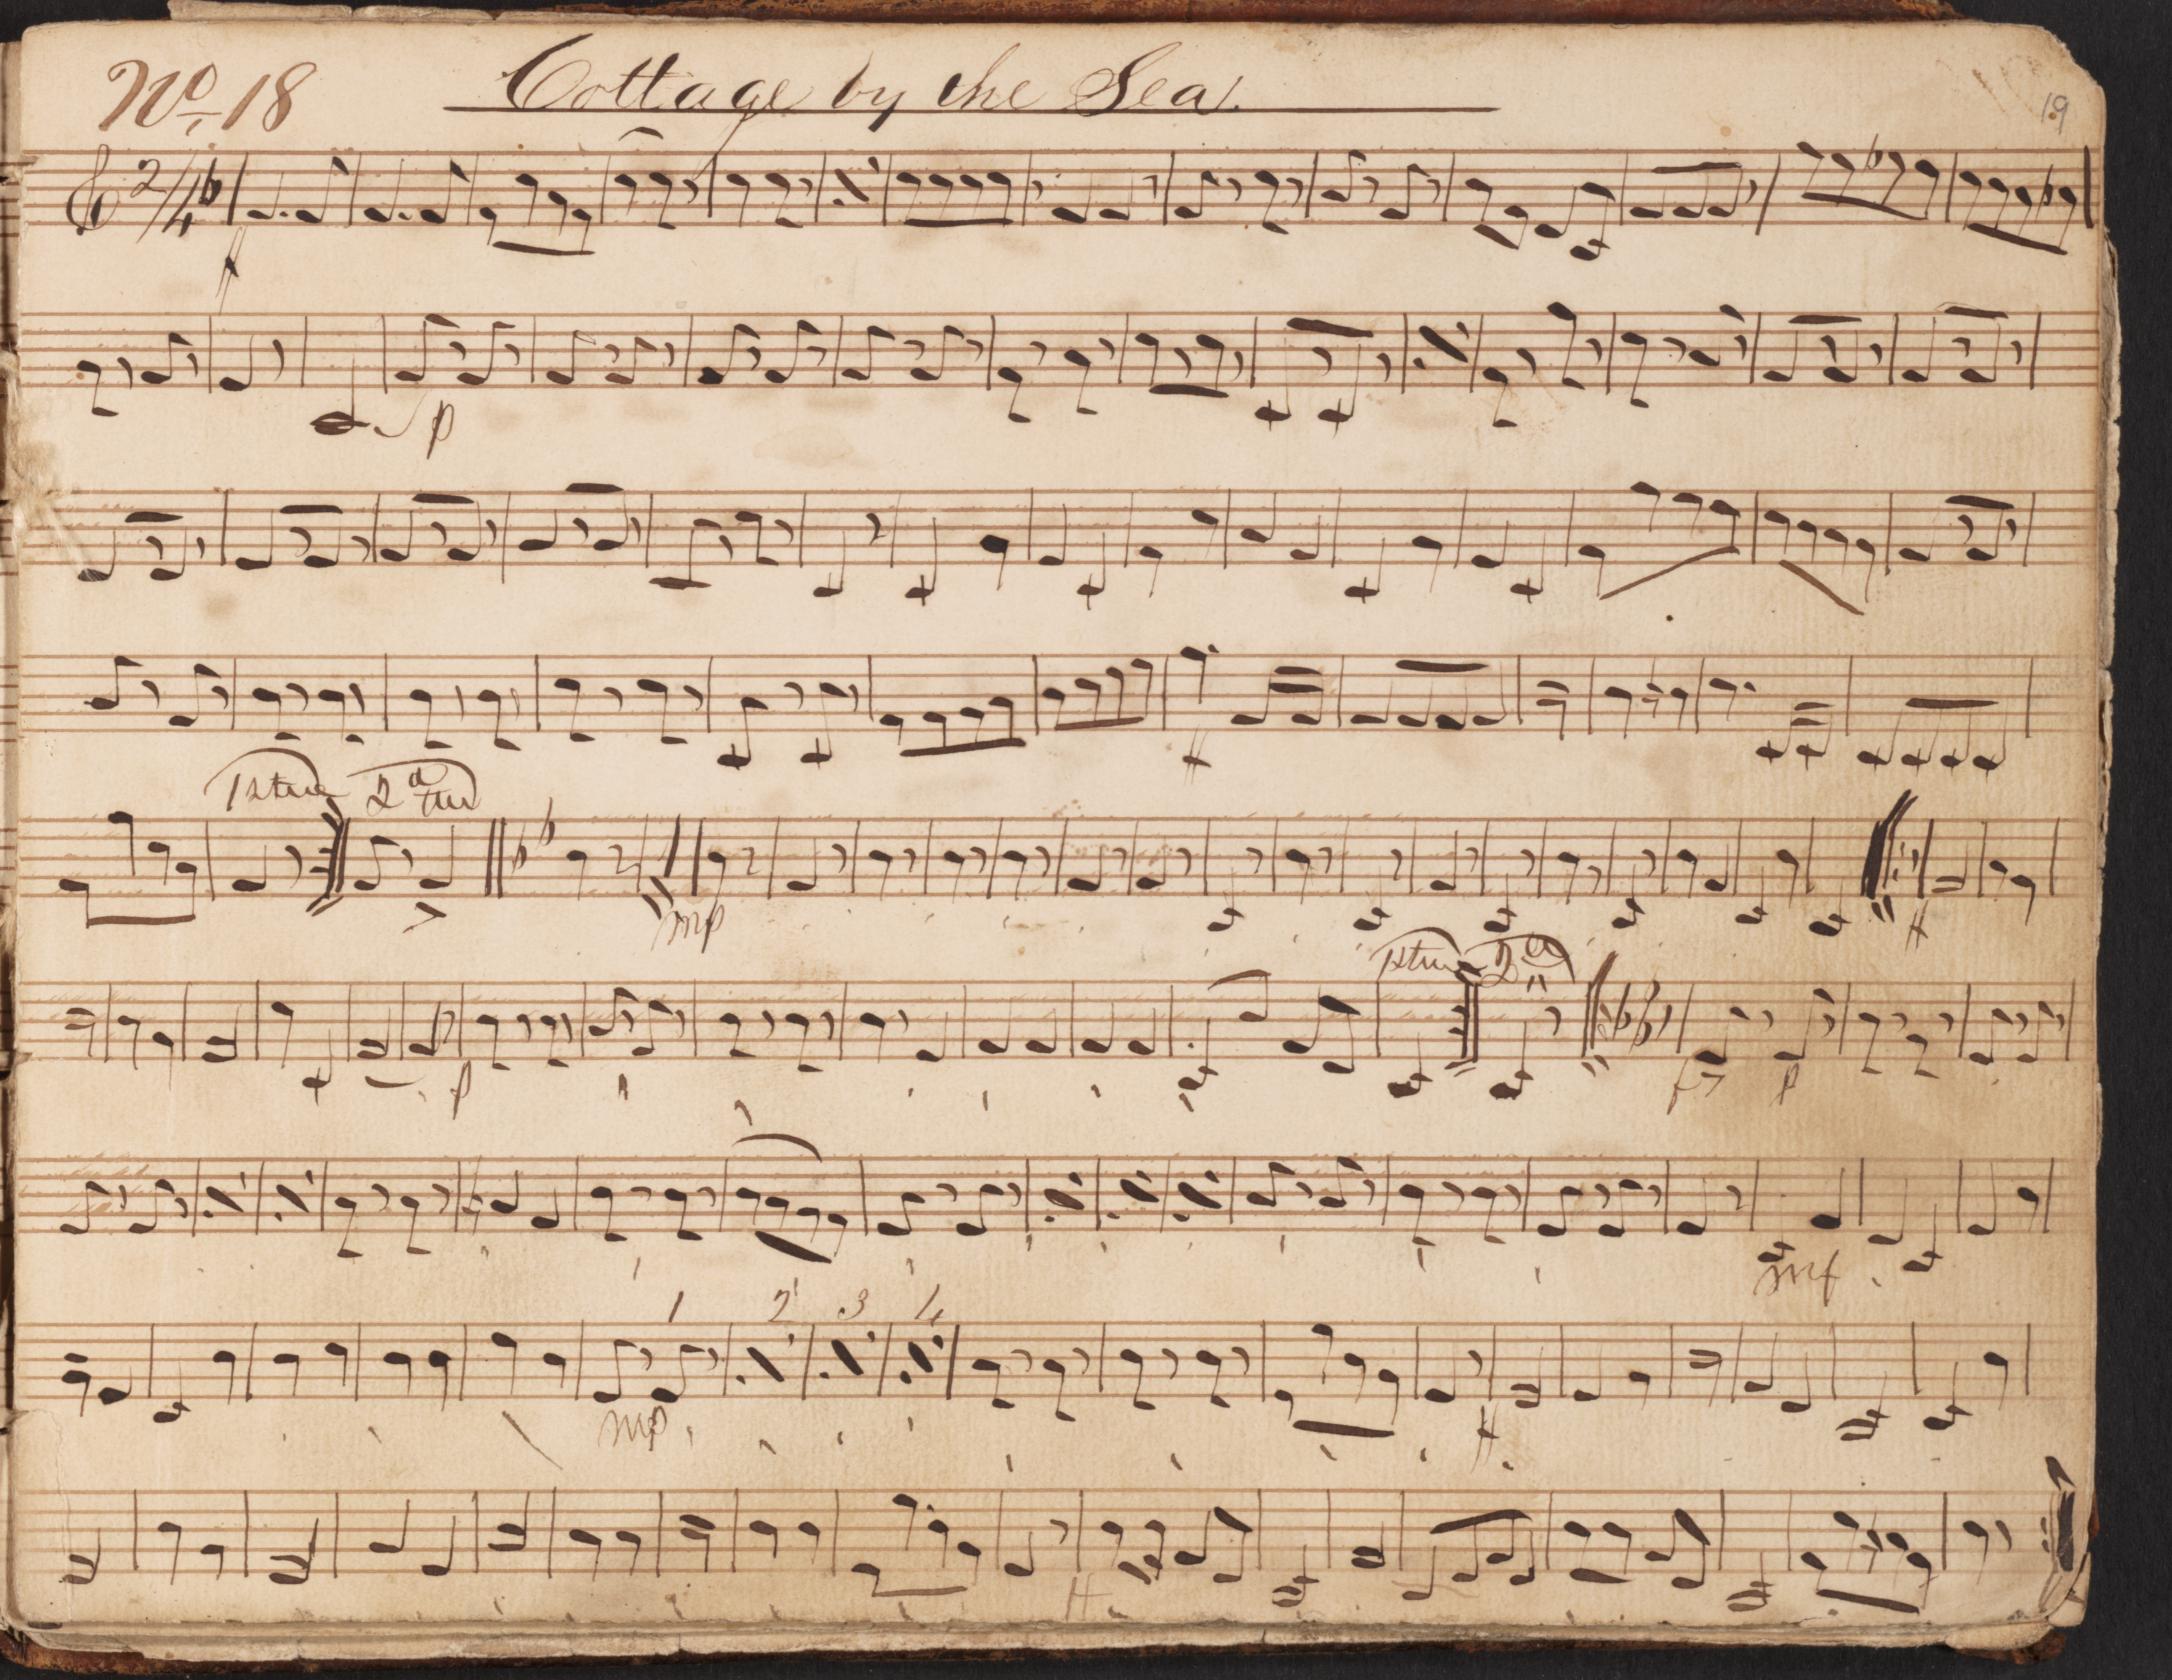 No. 18 Cottage by the Sea.
19
2/4
ff
p
ff
1st time 2d time
mp
ff
1st time 2d
p
f> p
mf
1 2 3 4
mp
ff
ff